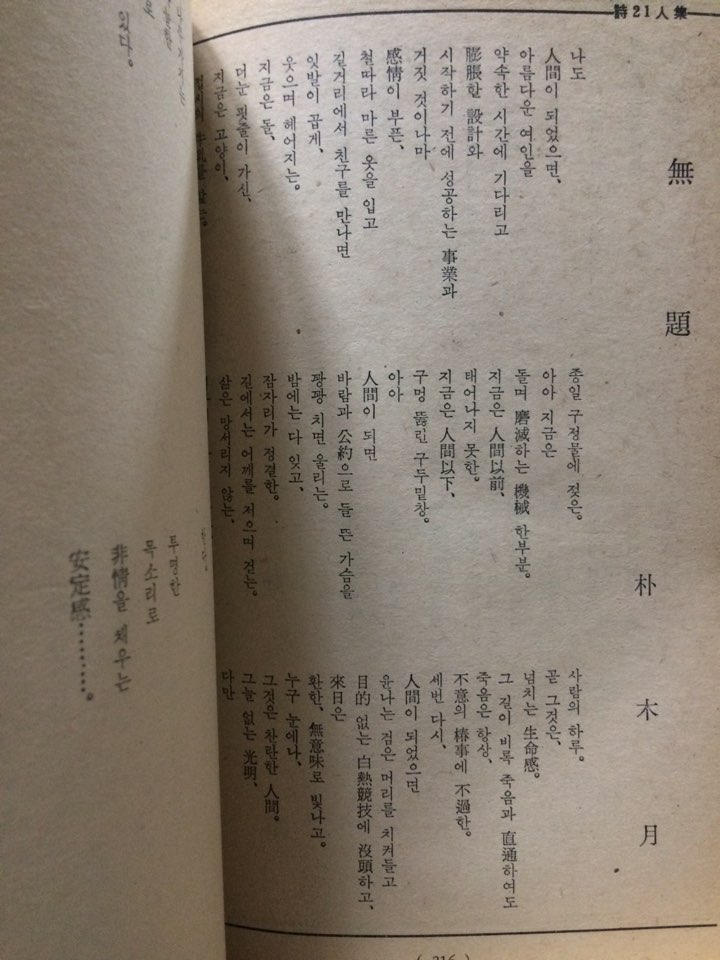 詩21人集
無題
朴木月
나도
人間이 되었으면、
아름다운 여인을
약속한 시간에 기다리고
膨脹할 設計와
시작하기 전에 성공하는 事業과
거짓 것이나마
感情이 부픈、
철따라 마른 옷을 입고
길거리에서 친구를 만나면
잇발이 곱게、
웃으며 헤어지는。
지금은 돌、
더눈 핏줄이 가신、
지금은 고양이、
종일 구정물에 젖은。
아아 지금은
돌며 磨滅하는 機械 한부분。
지금은 人間以前、
태어나지 못한。
지금은 人間以下、
구멍 뚫린 구두밑창。
아아
人間이 되면
바람과 公約으로 들 뜬 가슴을
꽝꽝 치면 울리는。
밤에는 다 잊고、
잠자리가 정결한。
길에서는 어깨를 저으며 걷는。
삶은 망서리지 않는、
사람의 하루。
곧 그것은、
넘치는 生命感。
그 길이 비록 죽음과 直通하여도
죽음은 항상、
不意의 椿事에 不過한。
세번 다시、
人間이 되었으면
윤나는 검은 머리를 치켜들고
目的 없는 白熱競技에 沒頭하고、
來日은
환한、無意味로 빛나고。
누구 눈에나、
그것은 찬란한 人間。
그늘 없는 光明、
다만
투명한
목소리로
非情을 채우는
安定感………。
있다。